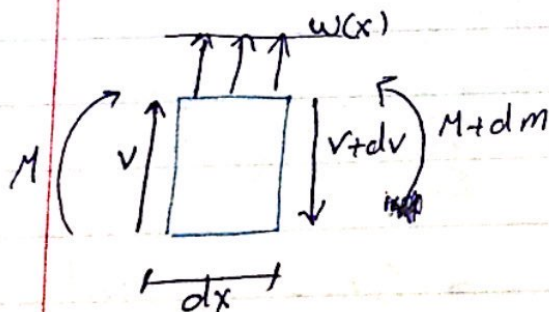 w(x)
M
V
V+dv
M+dm
dx